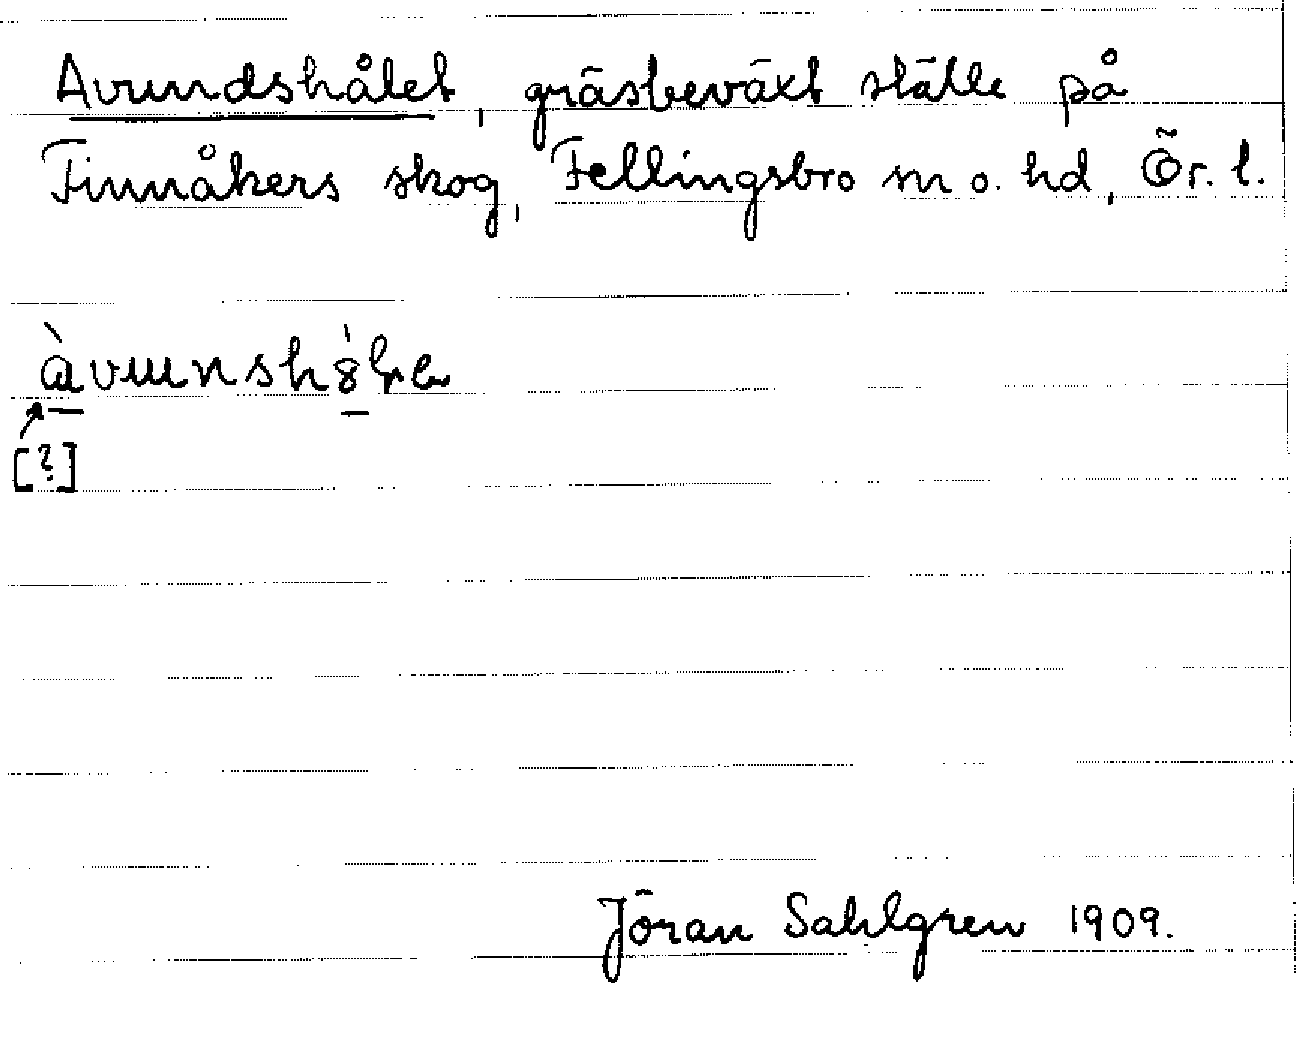 Avundshålet, gräsbeväxt ställe på
Finnåkers skog, Fellingsbro sn o. hd, Ör. l.
àvunsh8
[?]
Jöran Sahlgren 1909.